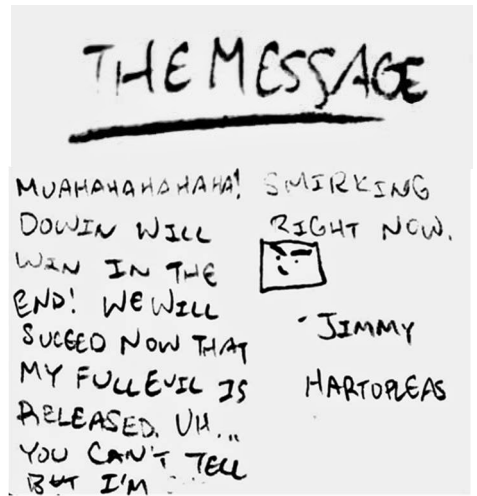 THE MESSAGE
MUAHAHAHAHAHA!
DOWIN WILL
WIN IN THE
END! WE WILL
SUCEED NOW THAT
MY FULL EVIL IS
RELEASED. UH...
YOU CAN'T TELL
BUT I'M
SMIRKING
RIGHT NOW.
- JIMMY
HARTOPLEAS